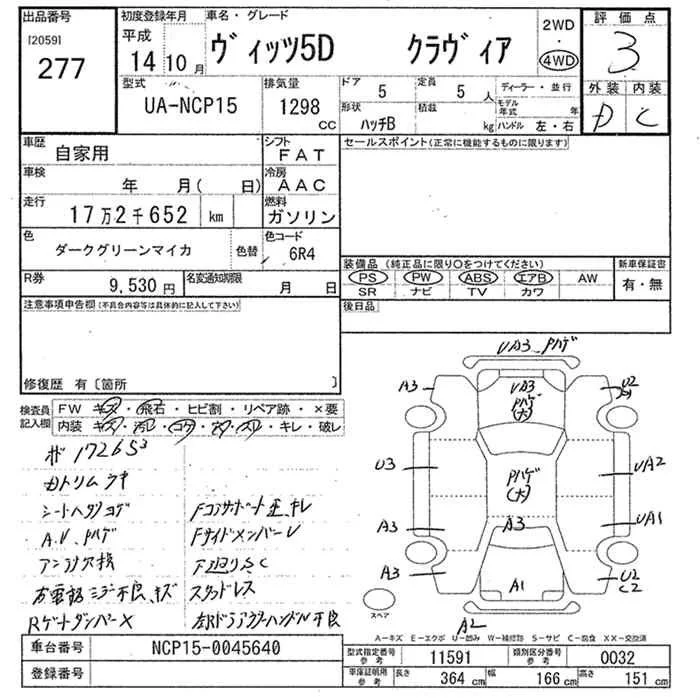 出品番号
[2059]
277
初度登録年月
平成
14年10月
車名・グレード
ヴィッツ5D クラヴィア
2WD
・
4WD
評価点
3
外装 内装
D C
型式
UA-NCP15
排気量
1298 CC
ドア 5
定員 5 人
ディーラー・並行
形状 ハッチB
積載 kg
モデル年式 年
ハンドル 左・右
車歴
自家用
シフト
FAT
セールスポイント(正常に機能するものに限ります)
車検
年 月( 日)
冷房
AAC
走行
17万2千652 km
燃料
ガソリン
色
ダークグリーンマイカ
色替
色コード
6R4
装備品(純正品に限り○をつけてください)
PS PW ABS エアB AW
SR ナビ TV カワ
新車保証書
有・無
R券
9,530円
名変通知期限
月 日
後日品
注意事項申告欄(不具合内容等は具体的に記入して下さい)
修復歴 有〔箇所 〕
検査員記入欄
FW キズ・飛石・ヒビ割・リペア跡・×要
内装 キズ・汚レ・コゲ・穴・スレ・キレ・破レ
172653
カトリムウキ
シートヘタリコゲ
A.W Pハゲ
アンテナ欠損
Rゲートダンパー×
Fサイドメンバー
下廻りSC
スタッドレス
UA3 Pハゲ
A3
UA3
Pハゲ
(大)
U2
U3
Pハゲ
(大)
UA2
A3
A3
UA1
A3
A1
U2
C2
A2
スペア
A―キズ E―エクボ U―凹み W―補修跡 S―サビ C―腐食 XX―交換済
車台番号
NCP15-0045640
登録番号
型式指定番号 参考
11591
類別区分番号 参考
0032
車庫証明用 参考
長さ 364 cm
幅 166 cm
高さ 151 cm